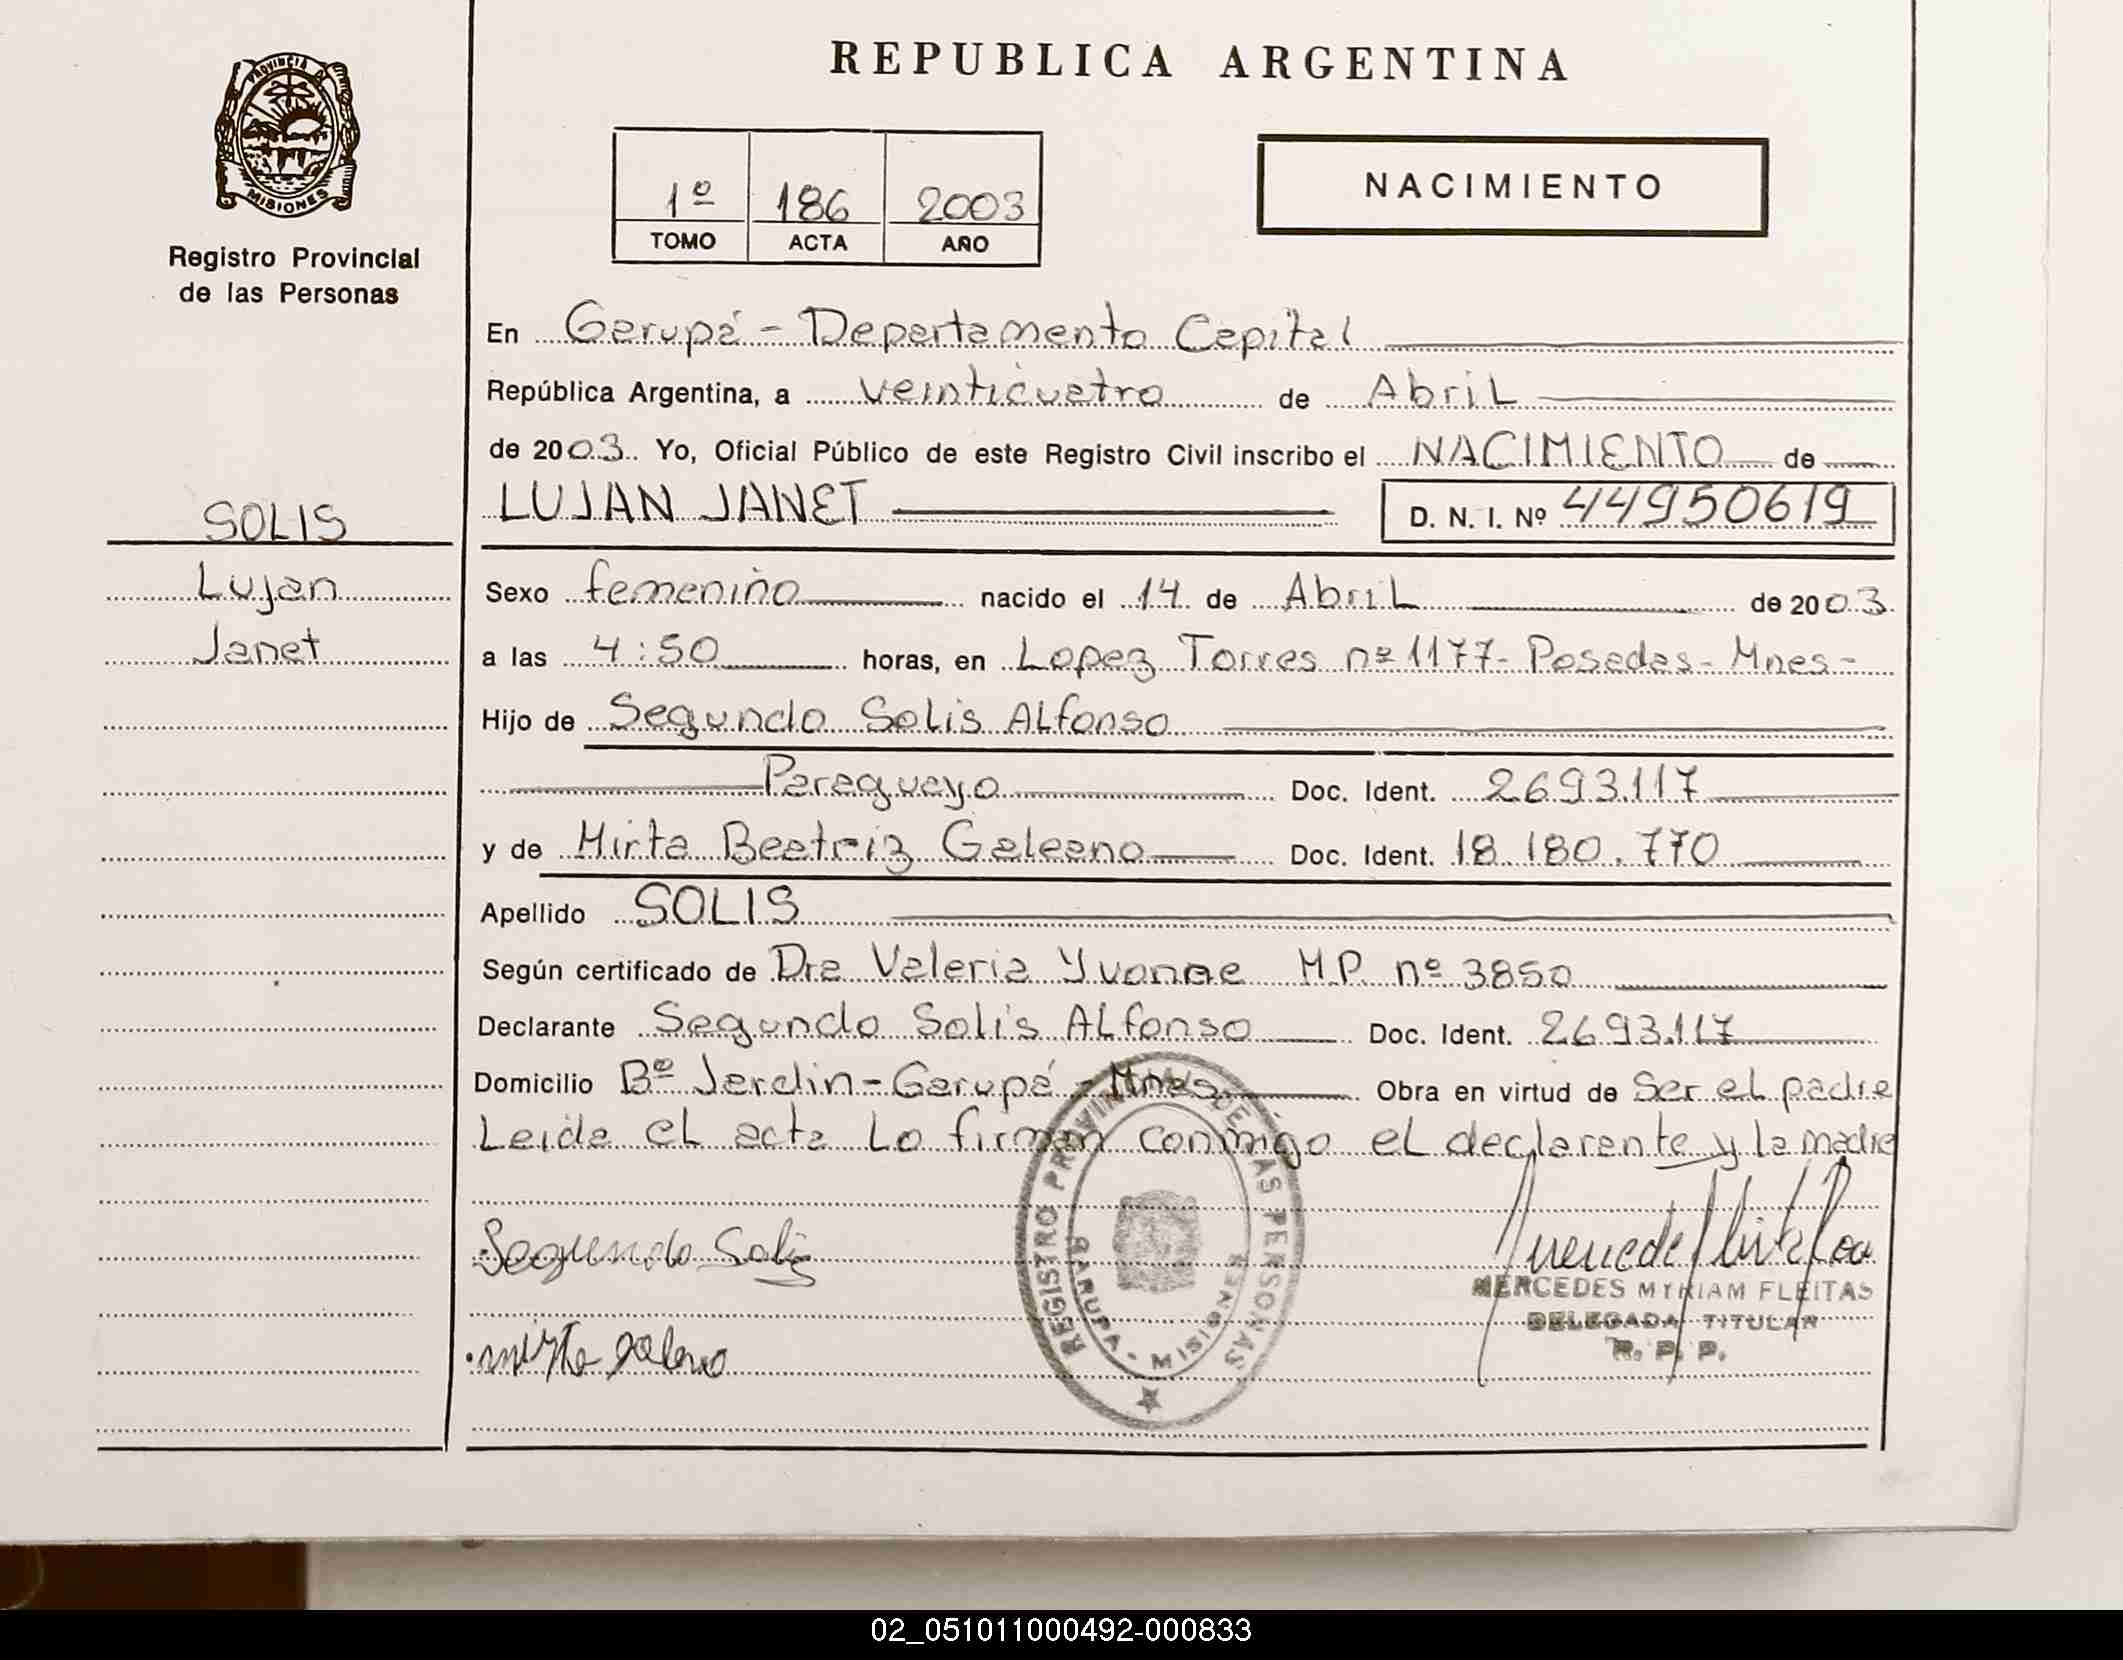 PROVINCIA D
MISIONES
Registro Provincial
de las Personas
SOLIS
Lujan
Janet
REPUBLICA ARGENTINA
1º 186 2003
TOMO ACTA AÑO
NACIMIENTO
En Garupá - Departamento Capital
República Argentina, a veinticuatro de Abril
de 2003. Yo, Oficial Público de este Registro Civil inscribo el NACIMIENTO de
LUJAN JANET D. N. I. Nº 44950619
Sexo femenino nacido el 14 de Abril de 2003
a las 4:50 horas, en Lopez Torres nº 1177 - Posadas - Mnes -
Hijo de Segundo Solis Alfonso
Paraguayo Doc. Ident. 2693.117
y de Mirta Beatriz Galeano Doc. Ident. 18.180.770
Apellido SOLIS
Según certificado de Dra Valeria Yvonne M.P. nº 3850
Declarante Segundo Solis Alfonso Doc. Ident. 2693.117
Domicilio Bº Jardin - Garupá - Mnes Obra en virtud de Ser el padre
Leida el acta lo firman conmigo el declarante y la madre
Segundo Solis
mirta galeano
REGISTRO PROVINCIAL DE LAS PERSONAS
GARUPA - MISIONES
MERCEDES MYRIAM FLEITAS
DELEGADA TITULAR
R. P. P.
02_051011000492-000833